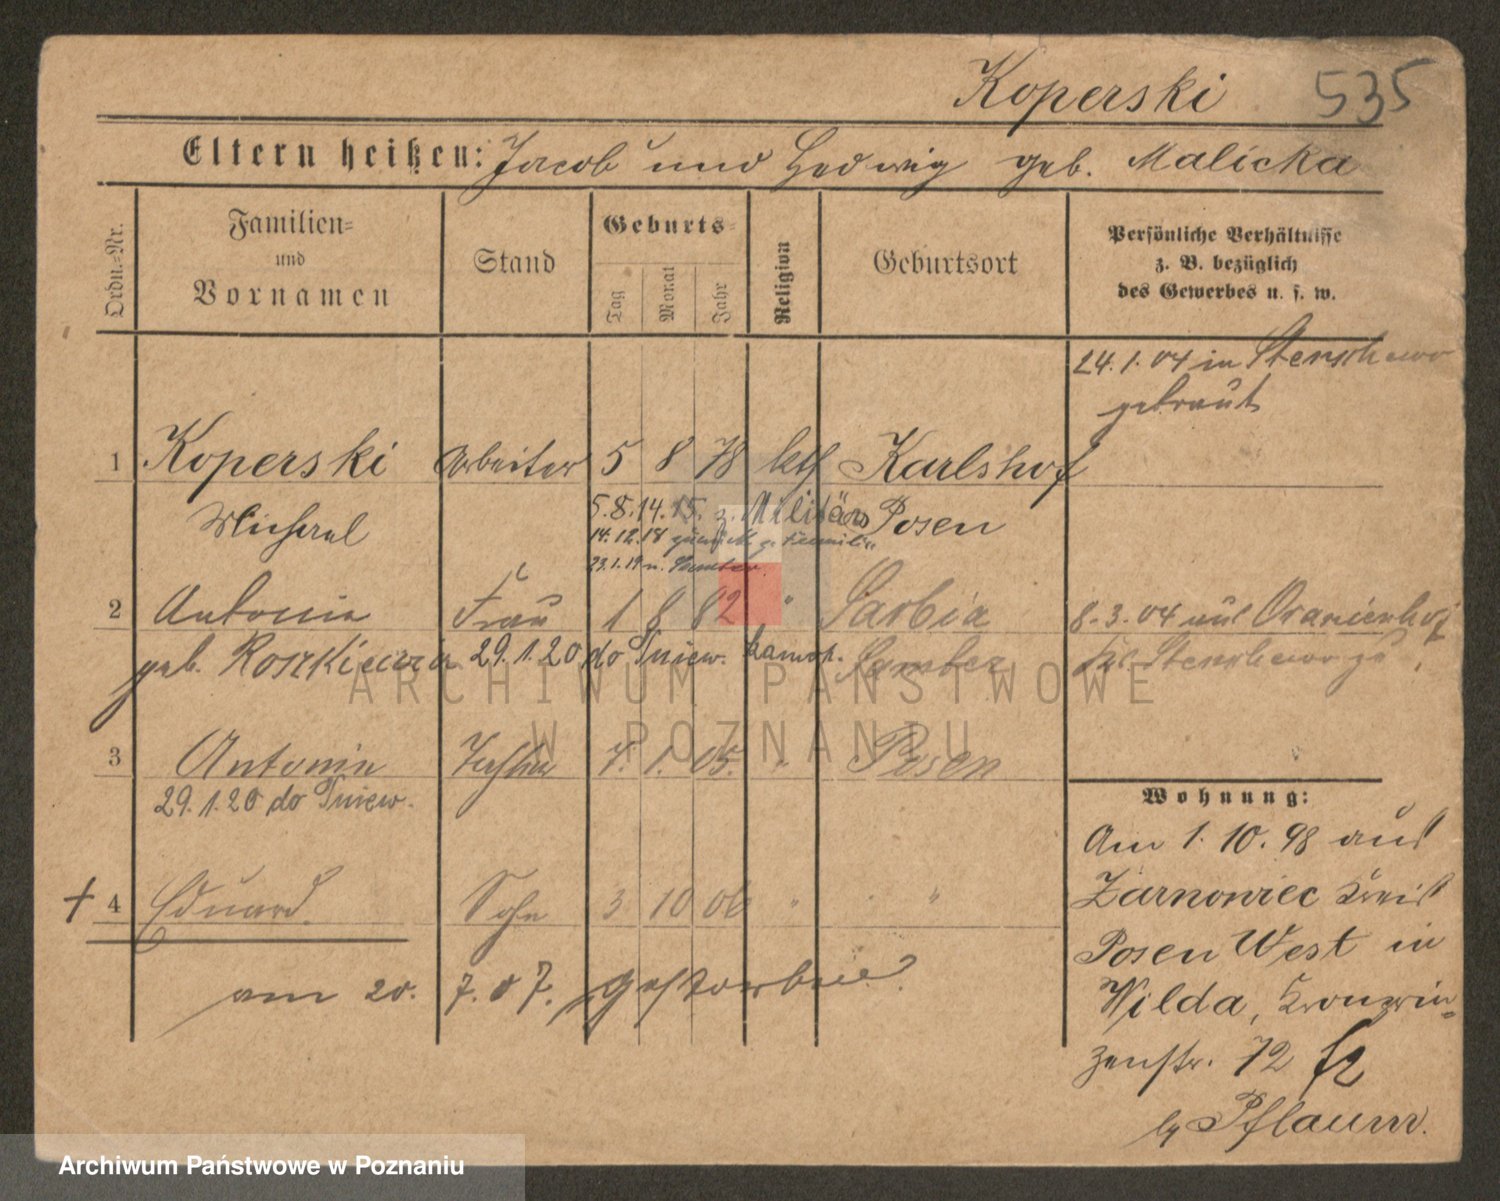 Koperski 535
Eltern heißen: Jacob und Hedwig geb. Malicka
Ordn.-Nr.
Familien- und Vornamen
Stand
Geburts-
Tag
Monat
Jahr
Religion
Geburtsort
Persönliche Verhältnisse
z. B. bezüglich
des Gewerbes u. s. w.
24.1.04 in Stenschewo
getraut
1 Koperski Arbeiter 5 8 78 kth Karlshof
Michael Posen
5.8.14.15. z. Militär
14.12.18 zurück z. Familie
23.1.19 n. Samter
2 Antonie Frau 1 8 82 " Sarbia
geb. Roszkiewicz 29.1.20 do Tniew. Samter
8.3.04 aus Oranienhof
Kr. Stenschewo zu
3 Antonie Tochter 7. 1. 05. " Posen
29.1.20 do Tniew.
Wohnung:
Am 1.10.98 aus
Żarnowiec Kreis
Posen West in
Wilda, Kronprin-
zenstr. 72
by Pflaum.
+ 4 Eduard Sohn 3 10 06 " "
am 20. 7.07. gestorben.
ARCHIWUM PAŃSTWOWE
W POZNANIU
Archiwum Państwowe w Poznaniu